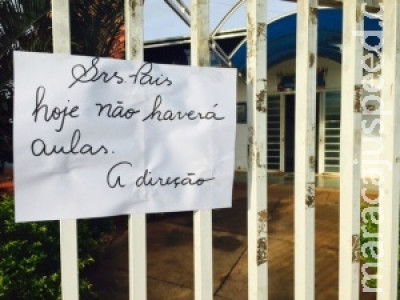 Srs. Pais
hoje não haverá
aulas.
A direção
maracajuspeed.com